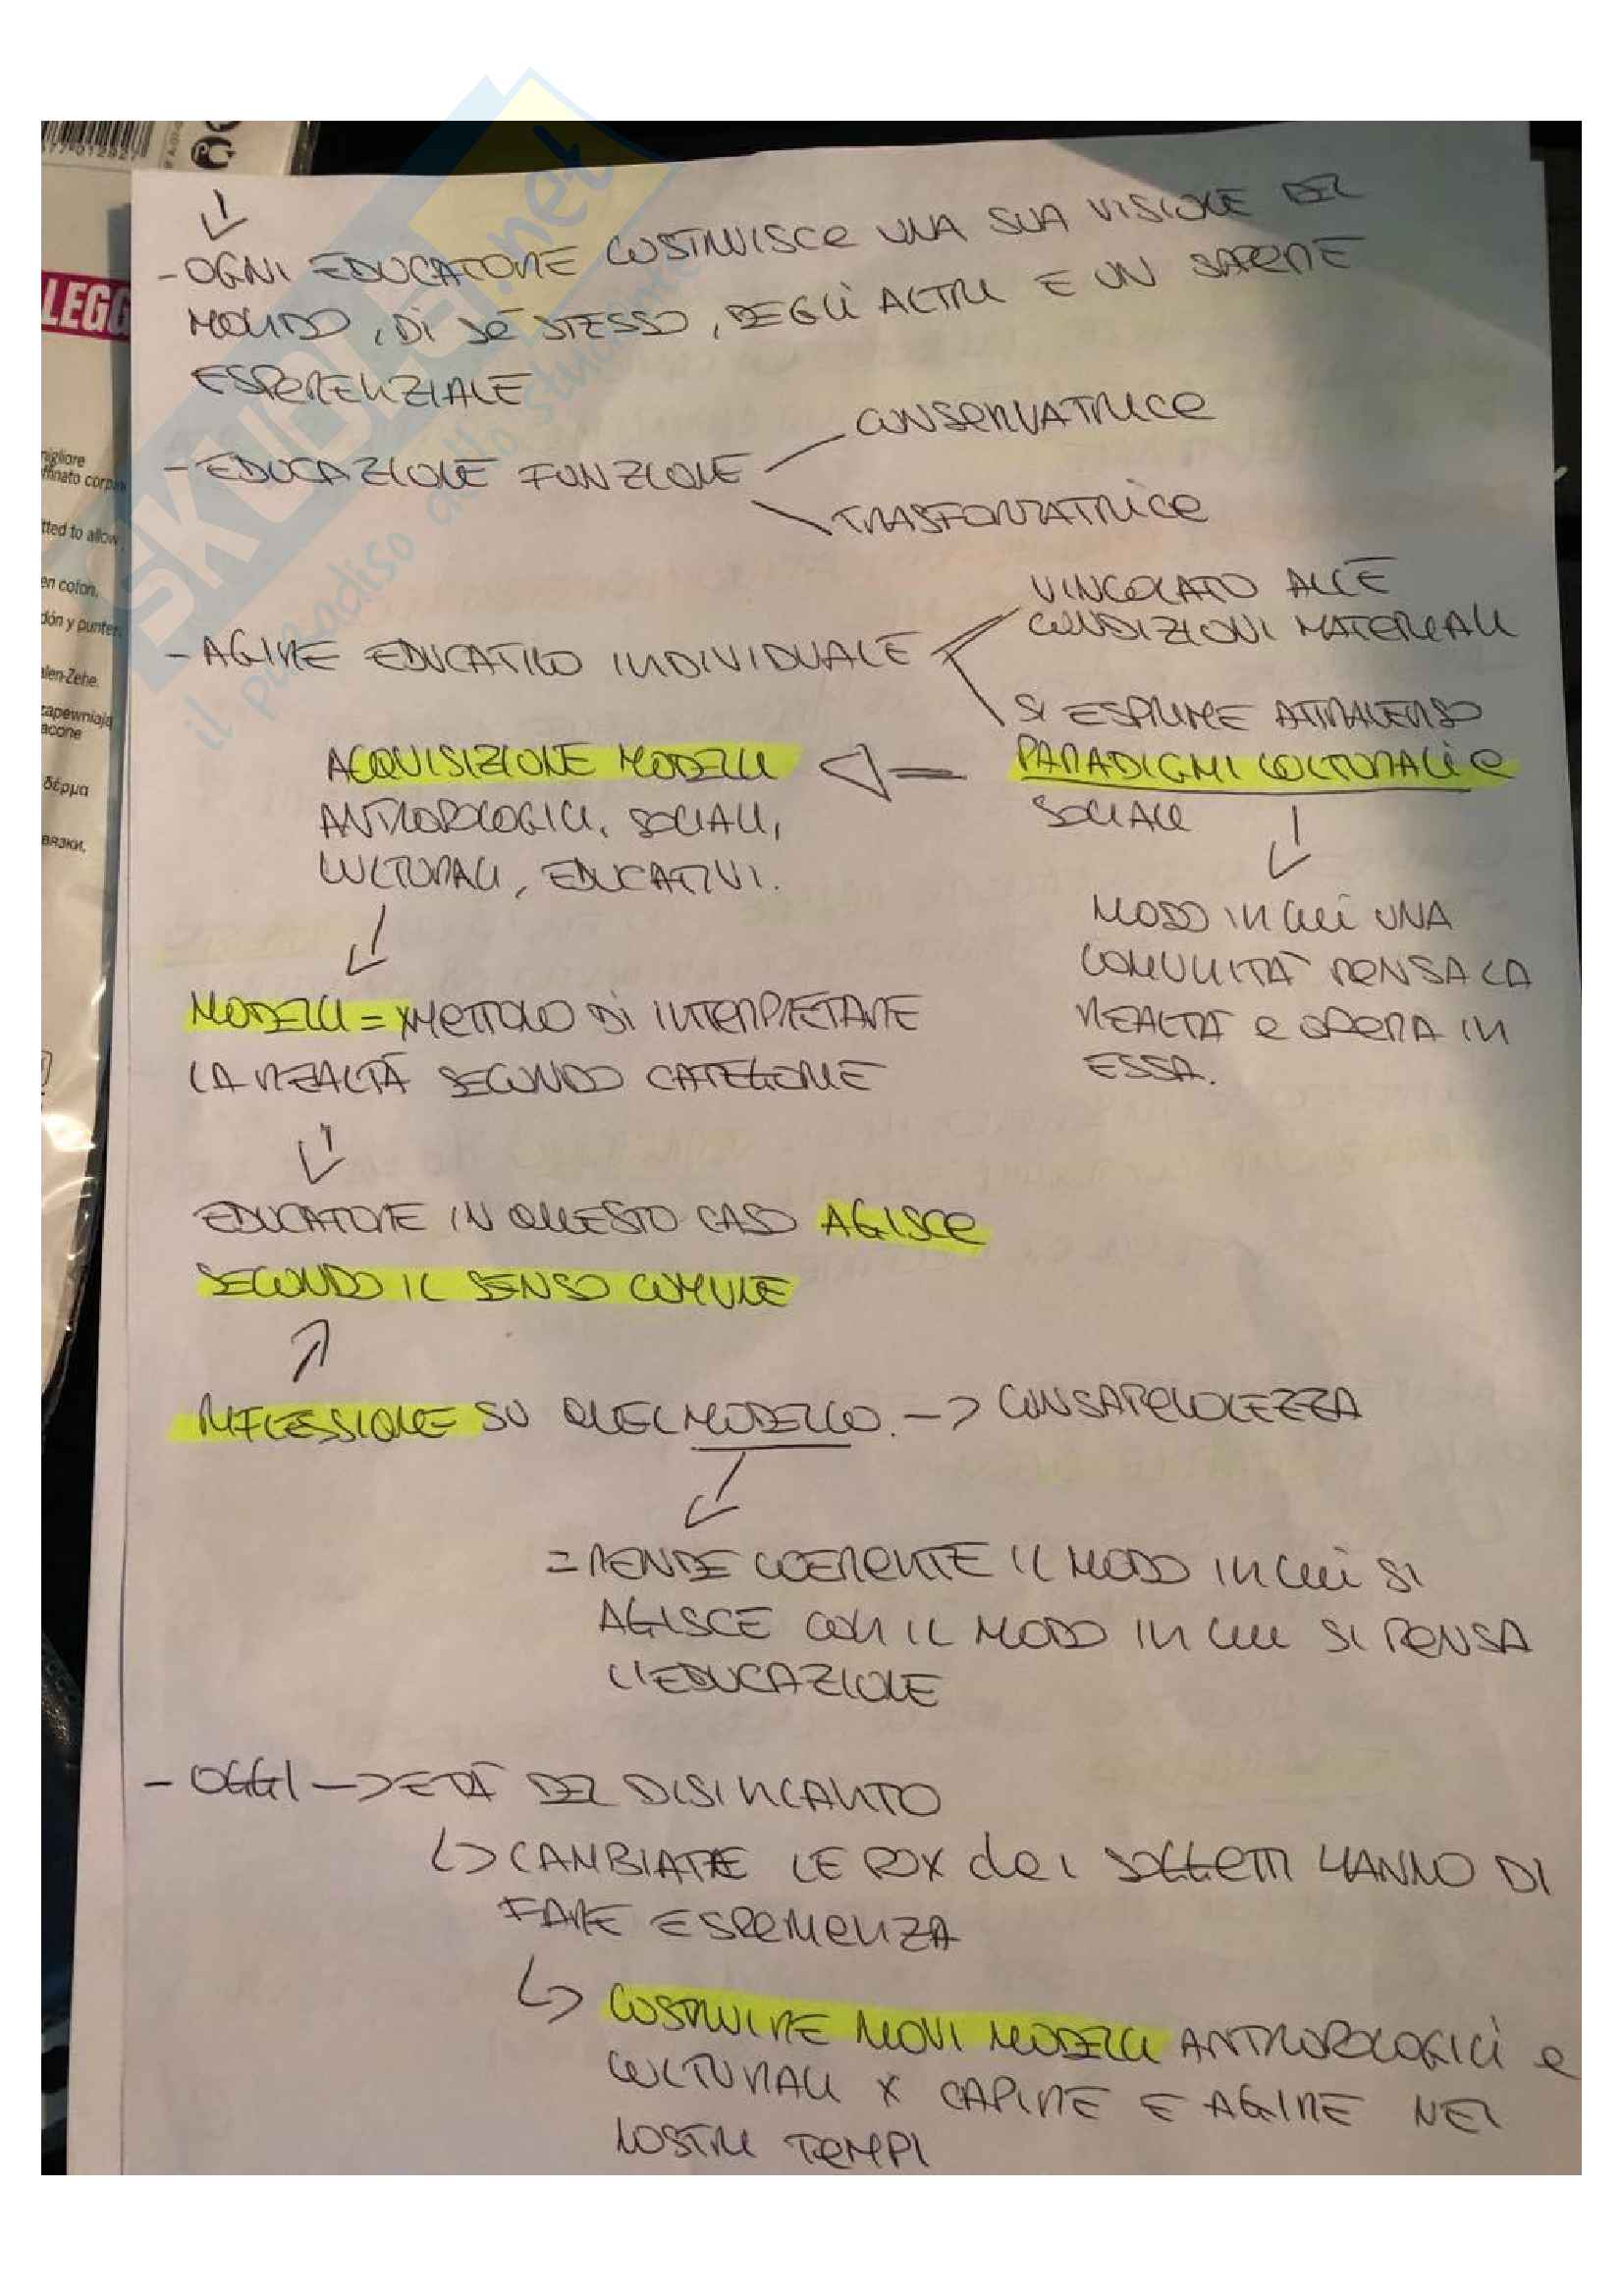 SKUOLA.net
il paradiso dello studente
LEGG
migliore
ffinato corpin
tted to allow
en coton.
dón y punter
alen-Zehe.
zapewniają
acone
δέρμα
вязки.
- OGNI EDUCATORE COSTRUISCE UNA SUA VISIONE DEL
MONDO, DI SÉ STESSO, DEGLI ALTRI E UN SAPERE
ESPERENZIALE
- EDUCAZIONE FUNZIONE
CONSERVATRICE
TRASFORMATRICE
- AGIRE EDUCATIVO INDIVIDUALE
VINCOLATO ALLE
CONDIZIONI MATERIALI
SI ESPRIME ATTRAVERSO
PARADIGMI CULTURALI E
SOCIALI
MODO IN CUI UNA
COMUNITÀ PENSA LA
REALTÀ E OPERA IN
ESSA.
ACQUISIZIONE MODELLI
ANTROPOLOGICI, SOCIALI,
CULTURALI, EDUCATIVI.
MODELLI = XMETTONO DI INTERPRETARE
LA REALTÀ SECONDO CATEGORIE
EDUCATORE IN QUESTO CASO AGISCE
SECONDO IL SENSO COMUNE
RIFLESSIONE SU QUEL MODELLO. -> CONSAPEVOLEZZA
= RENDE COERENTE IL MODO IN CUI SI
AGISCE CON IL MODO IN CUI SI PENSA
L'EDUCAZIONE
- OGGI -> ETÀ DEL DISINCANTO
CAMBIATE LE POX dei SOGGETTI HANNO DI
FARE ESPERIENZA
COSTRUIRE NUOVI MODELLI ANTROPOLOGICI e
CULTURALI X CAPIRE E AGIRE NEI
NOSTRI TEMPI